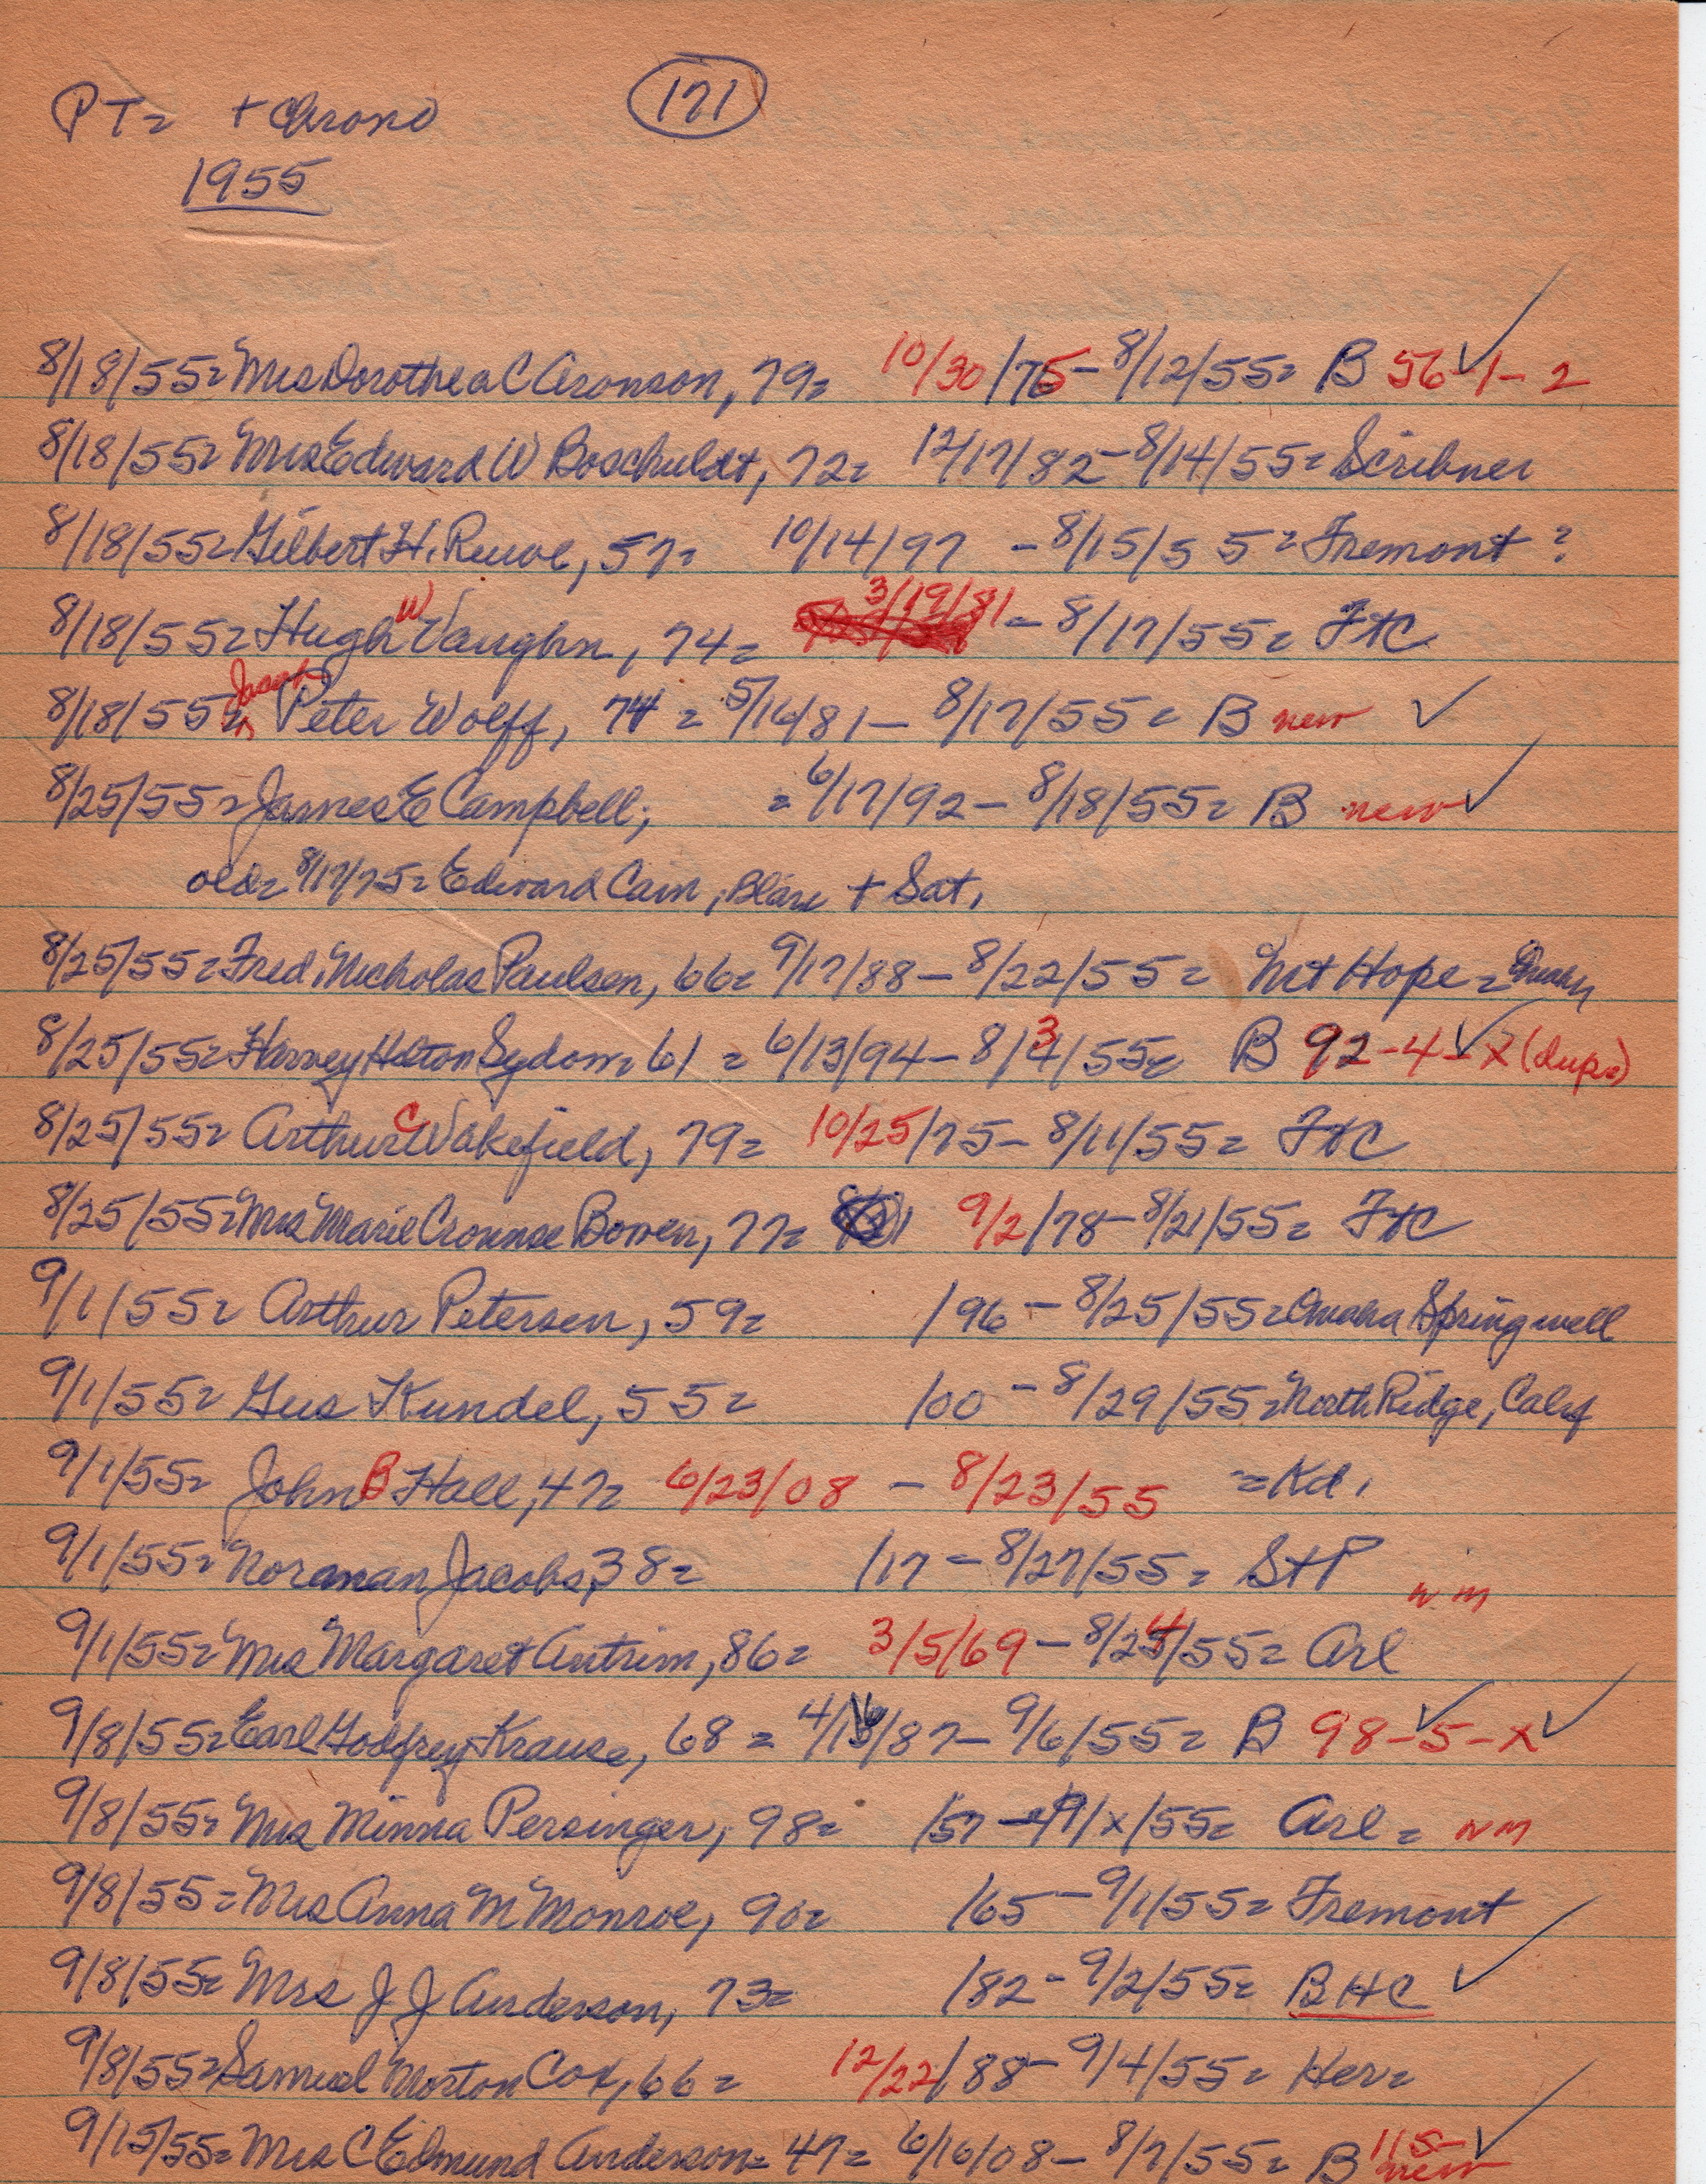 PT= + Chrono (171)
1955
8/18/55= Mrs Dorothea C Aronson, 79= 10/30/75- 8/12/55= B 56-1-2
8/18/55= Mrs Edward W Boschuldt, 72= 12/17/82- 8/14/55= Scribner
8/18/55= Gilbert H. Ruwe, 57= 10/14/97 - 8/15/55= Fremont ?
8/18/55= Hugh W Vaughn, 74= 3/19/81 - 8/17/55= FtC
8/18/55= Jacob Peter Wolff, 74 = 5/16/81- 8/17/55= B new
8/25/55= James E Campbell; = 6/17/92- 8/18/55= B new
old= 8/17/75= Edward Cain, Blair + Sat.
8/25/55= Fred Nicholas Paulsen, 66= 9/17/88- 8/22/55= Mt Hope =
8/25/55= Harvey Holton Sydom= 61 = 6/13/94- 8/3/55= B 92-4-X (dup=)
8/25/55= Arthur C Wakefield, 79= 10/25/75- 8/11/55= FtC
8/25/55= Mrs Marie Crounse Bowen, 77= 9/2/78- 8/21/55= FtC
9/1/55= Arthur Petersen, 59= /96 - 8/25/55= Omaha Springwell
9/1/55= Gus Kundel, 55= /00 - 8/29/55= North Ridge, Calif
9/1/55= John B Hall, 47= 6/23/08 - 8/23/55 = Kd.
9/1/55= Noraman Jacobs, 38= /17 - 8/27/55= StP nm
9/1/55= Mrs Margaret Antrim, 86= 3/5/69- 8/24/55= Arl
9/8/55= Earl Godfrey Krause, 68 = 4/16/87- 9/6/55= B 98-5-X
9/8/55= Mrs Minna Persinger, 98= /57 - 9/x/55= Arl = nm
9/8/55= Mrs Anna M Monroe, 90= /65 - 9/1/55= Fremont
9/8/55= Mrs J J Anderson, 73= /82 - 9/2/55= BHC
9/8/55= Samuel Morton Cox, 66= 12/22/88- 9/4/55= Her=
9/15/55= Mrs C Edmund Anderson= 47= 6/16/08- 8/7/55= B 115- new